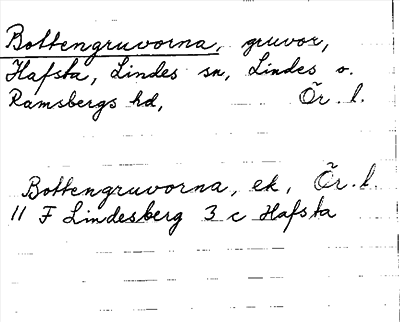 Bottengruvorna, gruvor,
Hafsta, Lindes sn, Lindes o.
Ramsbergs hd, Ör. l.
Bottengruvorna, ek, Ör. l.
11 F Lindesberg 3 c Hafsta